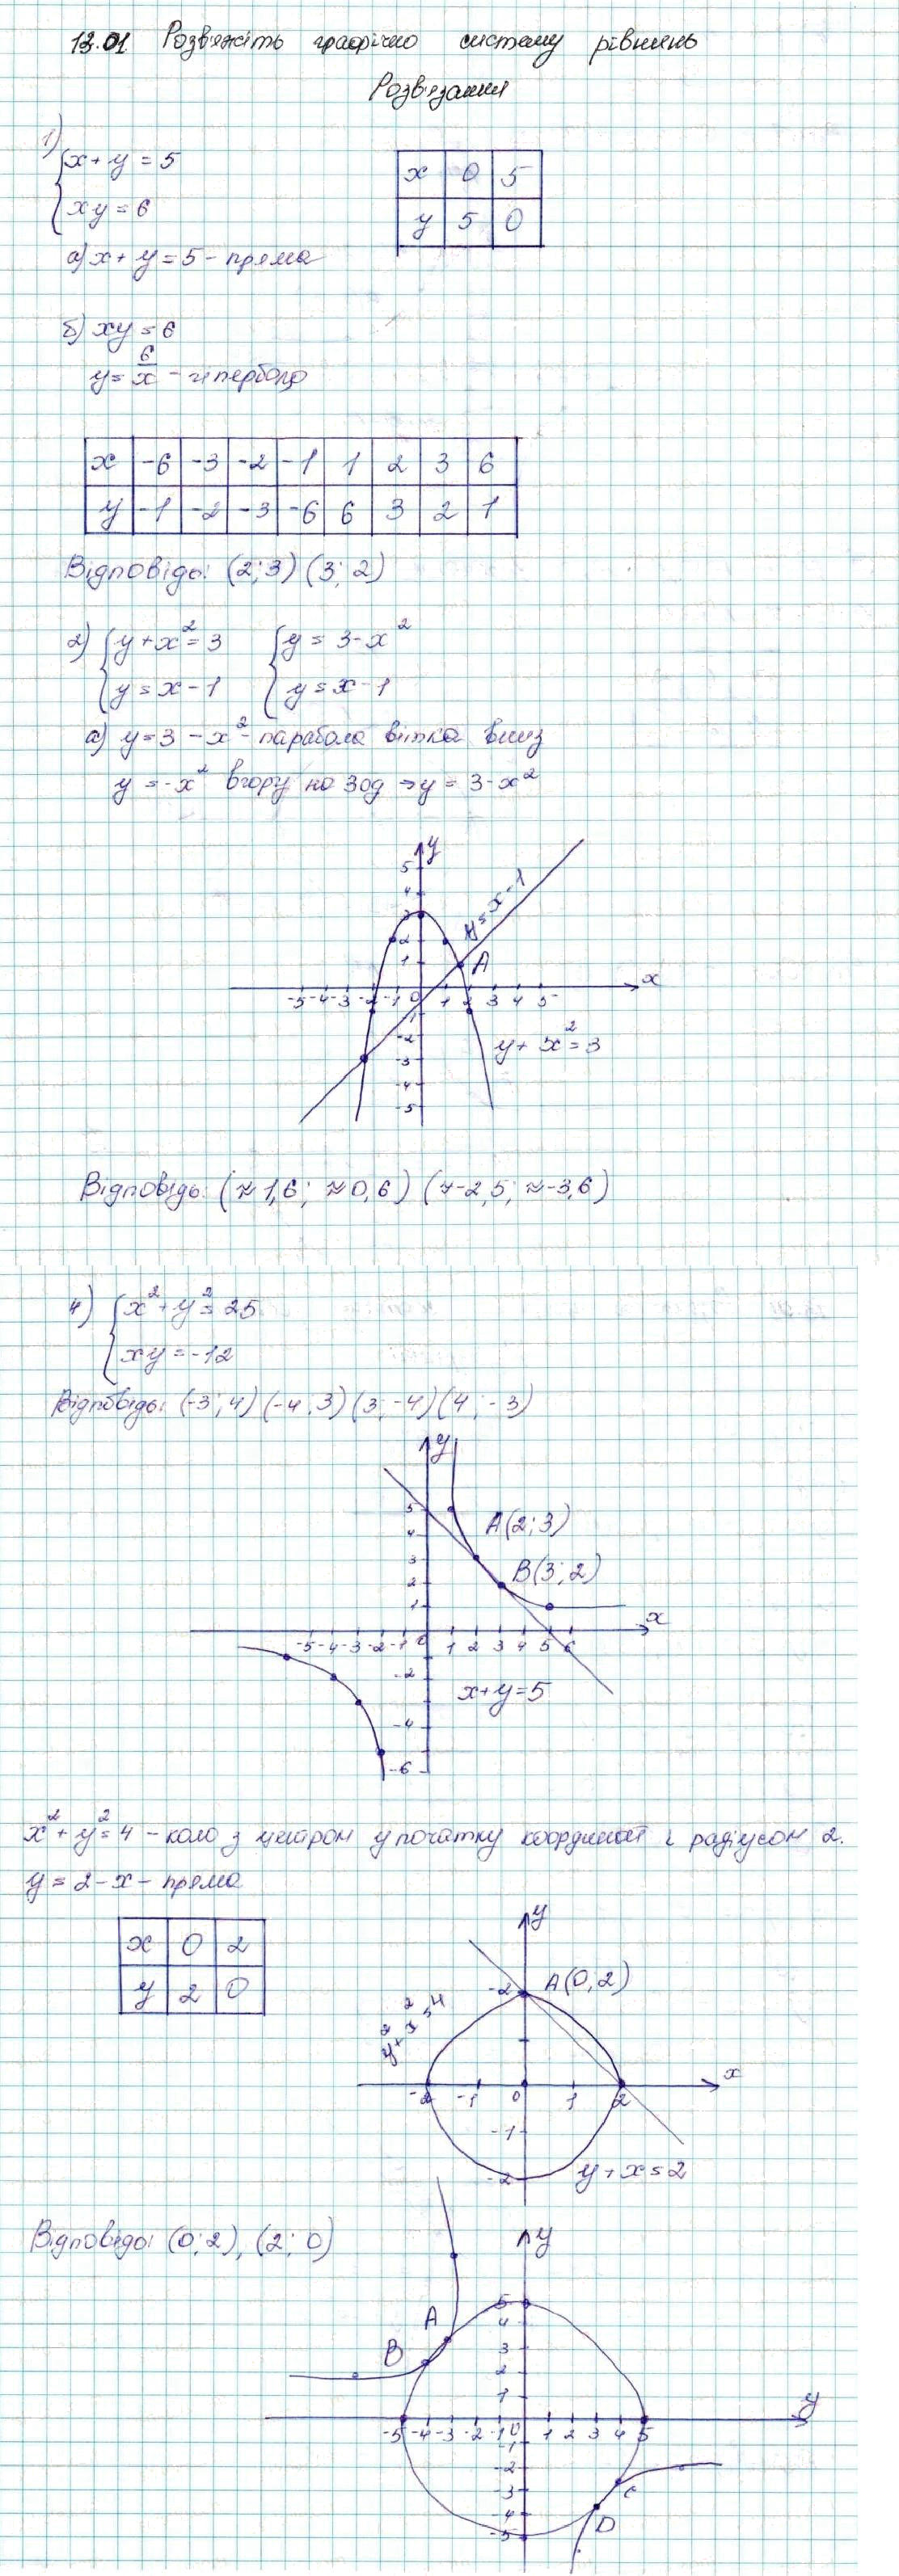 13.01 Розв'яжіть графічно систему рівнянь
Розв'язання
1)
{x + y = 5
xy = 6
x 0 5
y 5 0
а) x + y = 5 - пряма
б) xy = 6
y = 6/x - гіпербола
x -6 -3 -2 -1 1 2 3 6
y -1 -2 -3 -6 6 3 2 1
Відповідь: (2; 3) (3; 2)
2) {y + x² = 3 {y = 3 - x²
y = x - 1 y = x - 1
а) y = 3 - x² - парабола вітка вниз
y = -x² вгору на 3 од ⇒ y = 3 - x²
y
5
4
3
2
1
y = x - 1
A
x
-5 -4 -3 -2 -1 0 1 2 3 4 5
-1
-2
-3
-4
-5
y + x² = 3
Відповідь: (≈1,6; ≈0,6) (≈-2,5; ≈-3,6)
4) {x² + y² = 25
xy = -12
Відповідь: (-3; 4) (-4; 3) (3; -4) (4; -3)
y
5
4
3
2
1
A(2; 3)
B(3; 2)
x
-5 -4 -3 -2 -1 0 1 2 3 4 5 6
-2
-4
-6
x + y = 5
x² + y² = 4 - коло з центром у початку координат і радіусом 2.
y = 2 - x - пряма
x 0 2
y 2 0
y
-2
A(0; 2)
y² + x² = 4
x
-2 -1 0 1 2
-1
-2
y + x = 2
Відповідь: (0; 2), (2; 0)
y
5
4
3
2
1
A
B
y
-5 -4 -3 -2 -1 0 1 2 3 4 5
-1
-2
-3
-4
-5
C
D